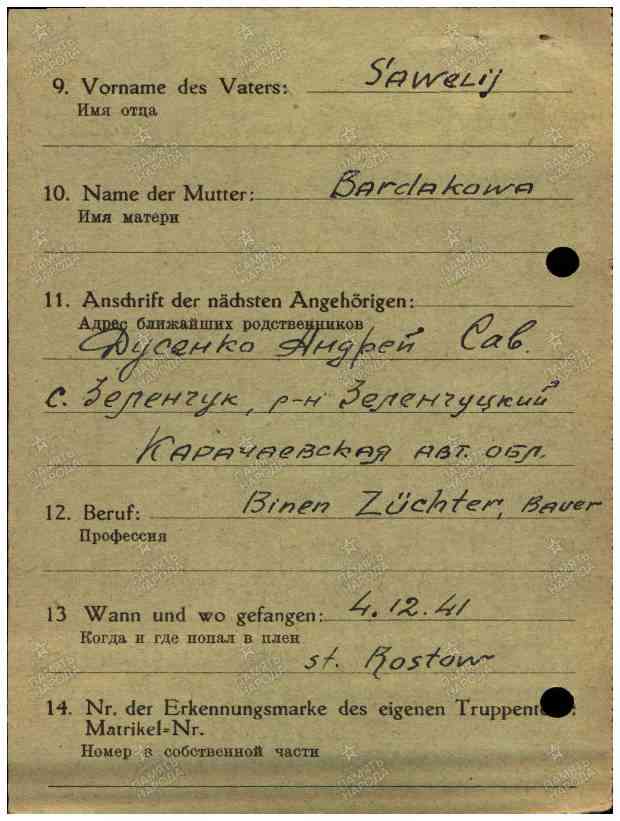 9. Vorname des Vaters: Sawelij
Имя отца
10. Name der Mutter: Bardakowa
Имя матери
11. Anschrift der nächsten Angehörigen:
Адрес ближайших родственников
Дусенко Андрей Сав.
с. Зеленчук, р-н Зеленчуцкий
Карачаевская авт. обл.
12. Beruf: Binen Züchter, Bauer
Профессия
13 Wann und wo gefangen: 4.12.41
Когда и где попал в плен
st. Rostow
14. Nr. der Erkennungsmarke des eigenen
Matrikel=Nr.
Номер в собственной части
ПАМЯТЬ НАРОДА